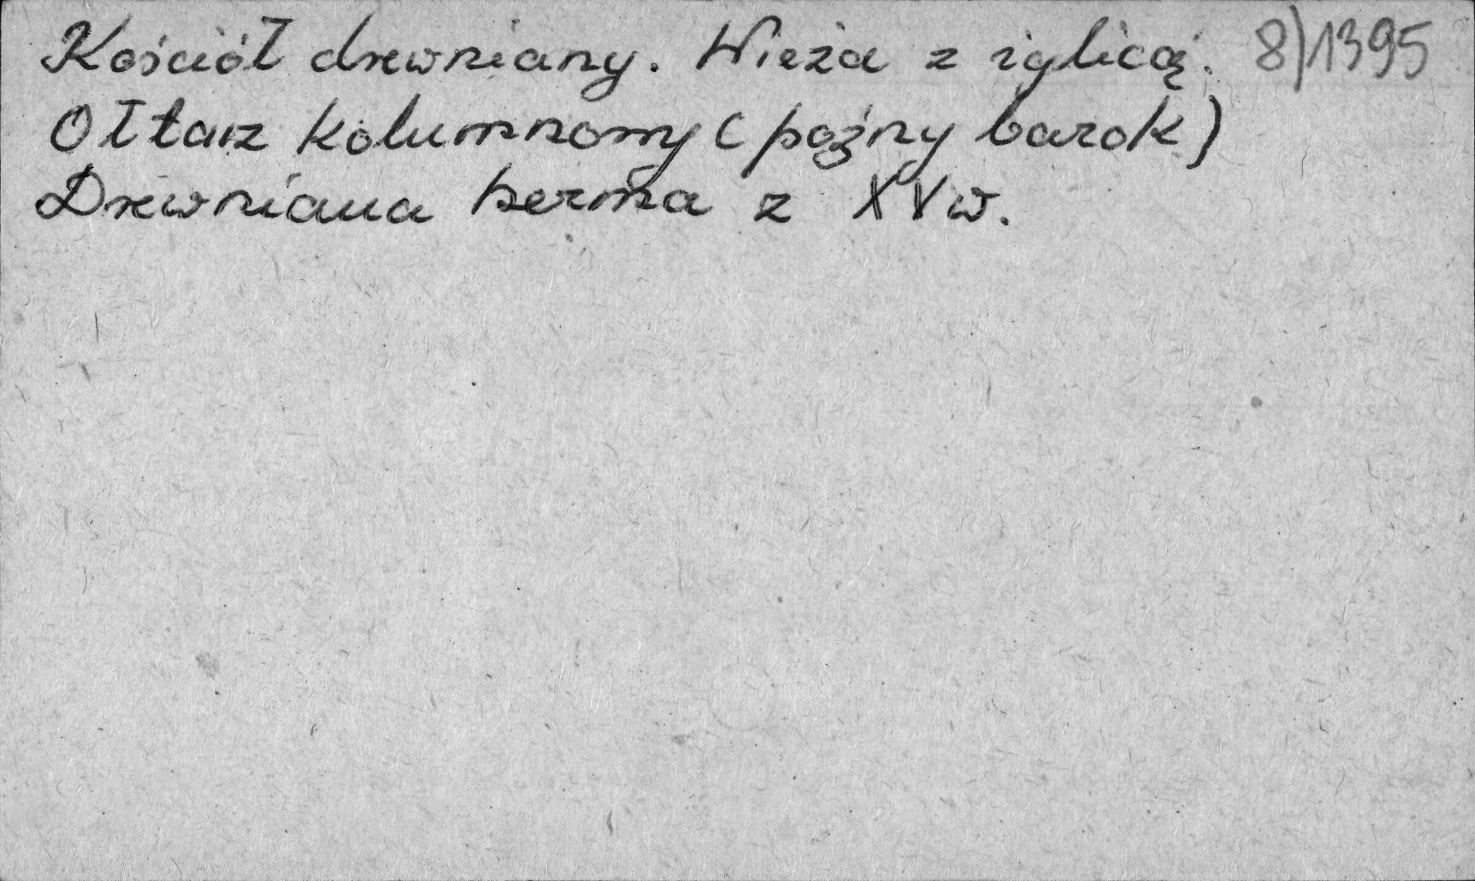 Kościół drewniany. Wieża z iglicą. 8)1395
Ołtarz kolumnowy (poźny barok)
Drewniana herma z XVw.